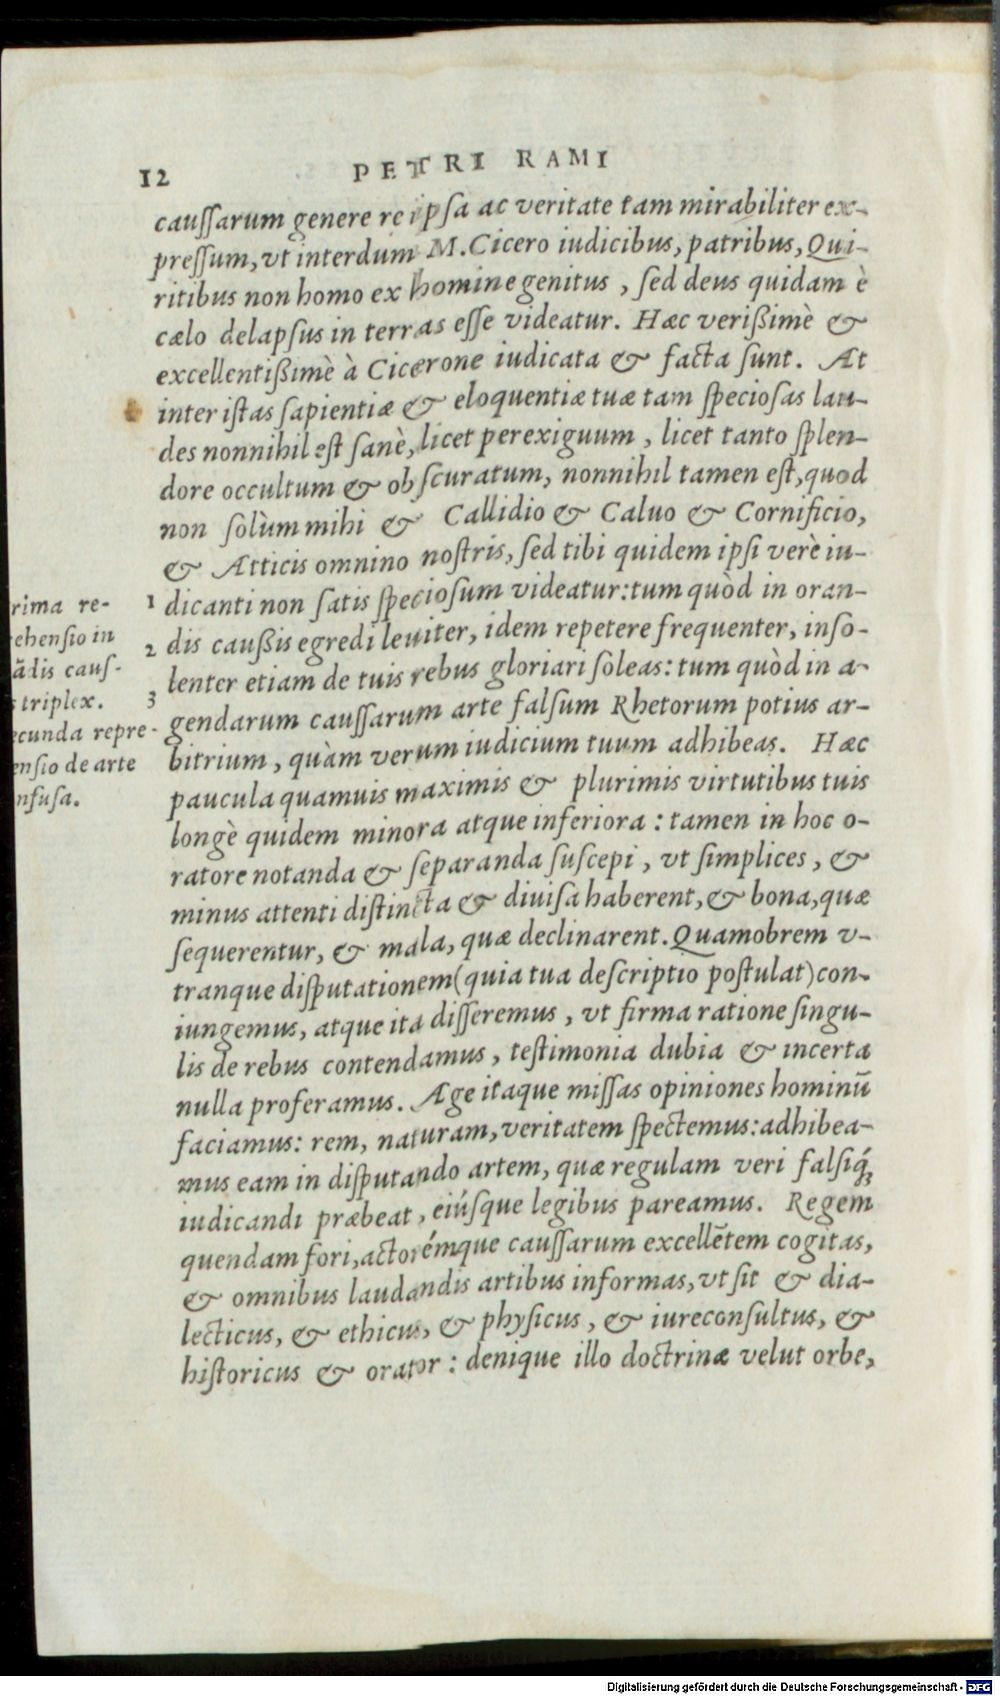 12 PETRI RAMI
cauſſarum genere re ipſa ac veritate tam mirabiliter ex-
preſſum, vt interdum M. Cicero iudicibus, patribus, Qui-
ritibus non homo ex homine genitus, ſed deus quidam è
cælo delapſus in terras eſſe videatur. Hæc verißimè &
excellentißimè à Cicerone iudicata & facta ſunt. At
inter iſtas ſapientiæ & eloquentiæ tuæ tam ſpecioſas lau-
des nonnihil eſt ſanè, licet perexiguum, licet tanto ſplen-
dore occultum & obſcuratum, nonnihil tamen eſt, quod
non ſolùm mihi & Callidio & Caluo & Cornificio,
& Atticis omnino noſtris, ſed tibi quidem ipſi verè iu-
1 dicanti non ſatis ſpecioſum videatur: tum quòd in oran-
2 dis caußis egredi leuiter, idem repetere frequenter, inſo-
lenter etiam de tuis rebus gloriari ſoleas: tum quòd in a-
3 gendarum cauſſarum arte falſum Rhetorum potius ar-
bitrium, quàm verum iudicium tuum adhibeas. Hæc
paucula quamuis maximis & plurimis virtutibus tuis
longè quidem minora atque inferiora: tamen in hoc o-
ratore notanda & ſeparanda ſuſcepi, vt ſimplices, &
minus attenti diſtincta & diuiſa haberent, & bona, quæ
ſequerentur, & mala, quæ declinarent. Quamobrem v-
tranque diſputationem (quia tua deſcriptio poſtulat) con-
iungemus, atque ita diſſeremus, vt firma ratione ſingu-
lis de rebus contendamus, teſtimonia dubia & incerta
nulla proferamus. Age itaque miſſas opiniones hominū
faciamus: rem, naturam, veritatem ſpectemus: adhibea-
mus eam in diſputando artem, quæ regulam veri falſiq́;
iudicandi præbeat, eiúſque legibus pareamus. Regem
quendam fori, actorémque cauſſarum excellētem cogitas,
& omnibus laudandis artibus informas, vt ſit & dia-
lecticus, & ethicus, & phyſicus, & iureconſultus, &
hiſtoricus & orator: denique illo doctrinæ velut orbe,
rima re-
ehenſio in
ādis cauſ-
s triplex.
ecunda repre-
enſio de arte
nfuſa.
Digitalisierung gefördert durch die Deutsche Forschungsgemeinschaft - DFG